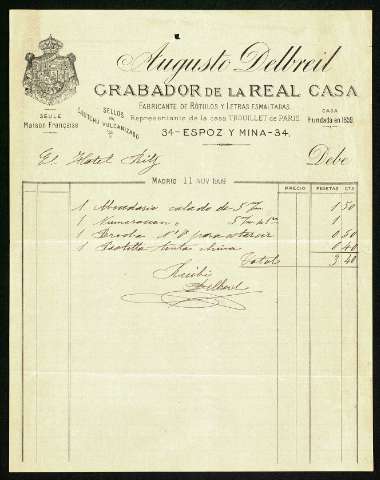 Augusto Delbreil
GRABADOR DE LA REAL CASA
FABRICANTE DE RÓTULOS Y LETRAS ESMALTADAS
Representante de la casa TROUILLET de PARIS
34-ESPOZ Y MINA-34
SEULE
Maison Française
SELLOS
EN
CAUTCHU VULCANIZADO
CASA
Fundada en 1859
El Hotel Ritz Debe
MADRID 11 NOV 1909 PRECIO PESETAS CTS
1 Abecedario calado de 5 7m 1 50
1 Numeracion 5 1
1 Brocha Nº 8 para 0 50
1 Pastilla tinta china 0 40
Total 3 40
Recibí
Delbreil